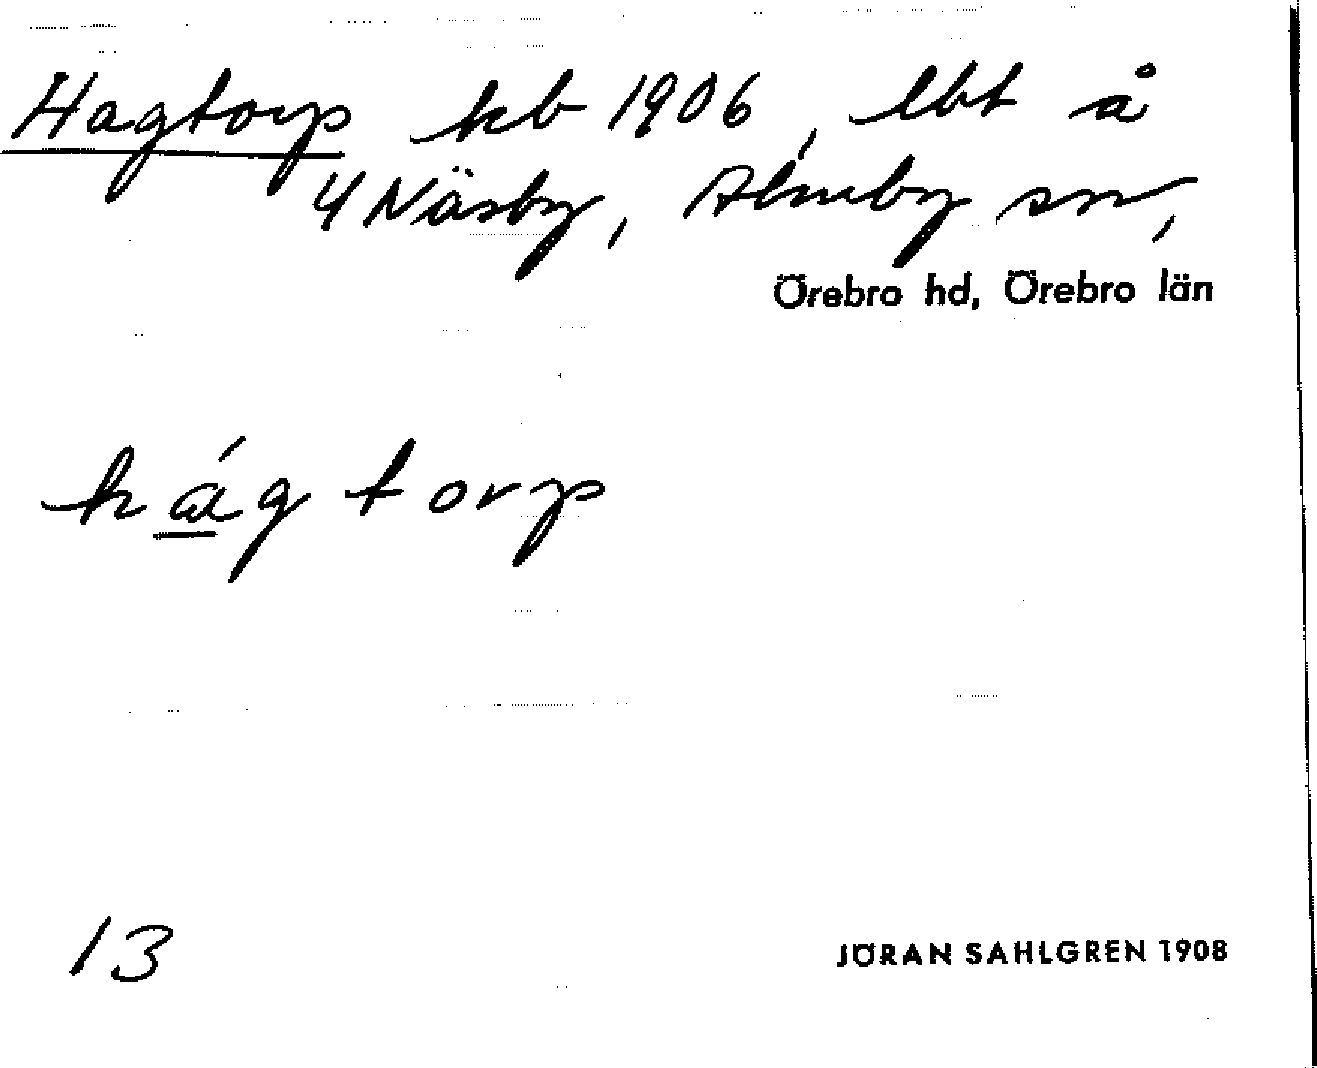 Hagtorp kb 1906, lbt å
4 Näsby, Almby sn,
Örebro hd, Örebro län
hágtorp
13
JÖRAN SAHLGREN 1908